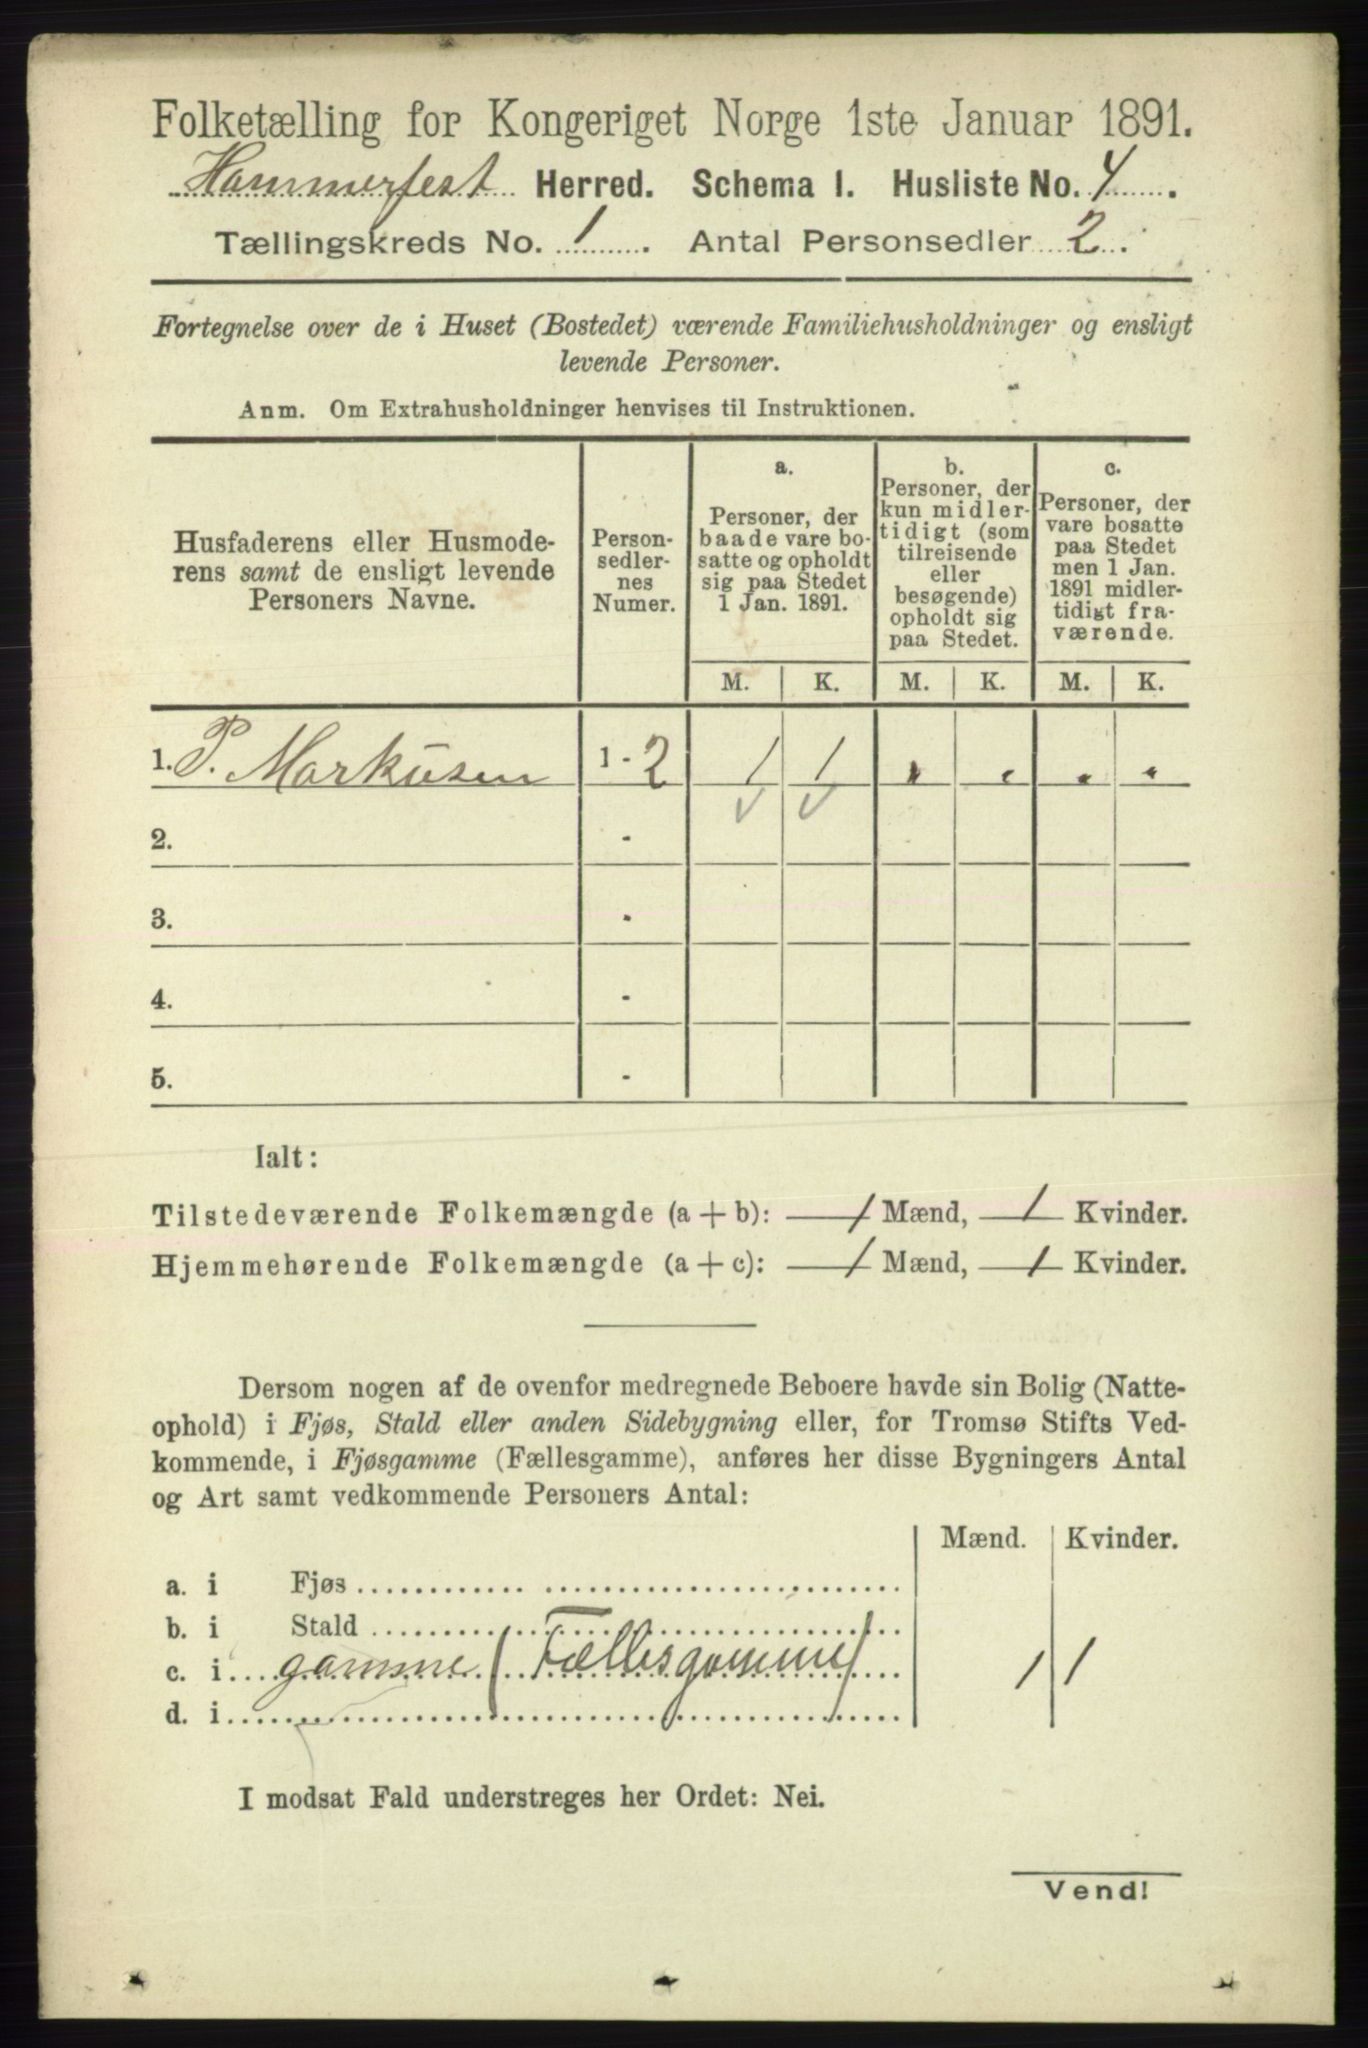 Folketælling for Kongeriget Norge 1ste Januar 1891.
Hammerfest Herred. Schema 1. Husliste No. 4.
Tællingskreds No. 1. Antal Personsedler 2.
Fortegnelse over de i Huset (Bostedet) værende Familiehusholdninger og ensligt
levende Personer.
Anm. Om Extrahusholdninger henvises til Instruktionen.
Husfaderens eller Husmode-
rens samt de ensligt levende
Personers Navne.
Person-
sedler-
nes
Numer.
a.
Personer, der
baade vare bo-
satte og opholdt
sig paa Stedet
1 Jan. 1891.
b.
Personer, der
kun midler-
tidigt (som
tilreisende
eller
besøgende)
opholdt sig
paa Stedet.
c.
Personer, der
vare bosatte
paa Stedet
men 1 Jan.
1891 midler-
tidigt fra-
værende.
M. K. M. K. M. K.
1. P. Markusen 1 - 2 1 1 . . . .
2. -
3. -
4. -
5. -
Ialt:
Tilstedeværende Folkemængde (a + b): 1 Mænd, 1 Kvinder.
Hjemmehørende Folkemængde (a + c): 1 Mænd, 1 Kvinder.
Dersom nogen af de ovenfor medregnede Beboere havde sin Bolig (Natte-
ophold) i Fjøs, Stald eller anden Sidebygning eller, for Tromsø Stifts Ved-
kommende, i Fjøsgamme (Fællesgamme), anføres her disse Bygningers Antal
og Art samt vedkommende Personers Antal:
Mænd. Kvinder.
a. i Fjøs
b. i Stald
c. i gamme (Fællesgamme) 1 1
d. i
I modsat Fald understreges her Ordet: Nei.
Vend!